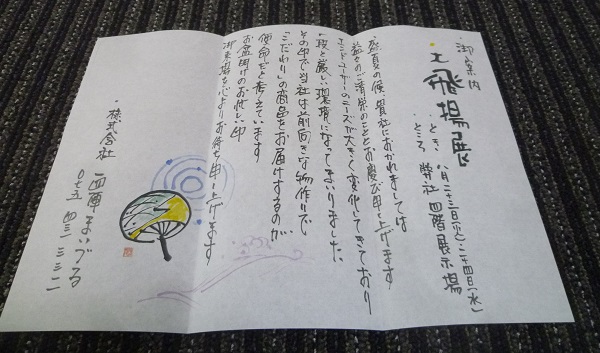 御案内
土飛揚展
とき、八月二十三日(火)二十四日(水)
ところ 弊社四階展示場
盛夏の候、貴社におかれましては
益々のご清栄のこととお慶び申し上げます
エンドユーザーのニーズが大きく変化してきており
一段と厳しい環境になってまいりました。
その中で当社は前向きな物作りで、
「こだわり」の商品をお届けするのが
使命だと考えています
お盆明けのお忙しい中
御来場を心よりお待ち申し上げます
株式会社 西陣まいづる
〇七五